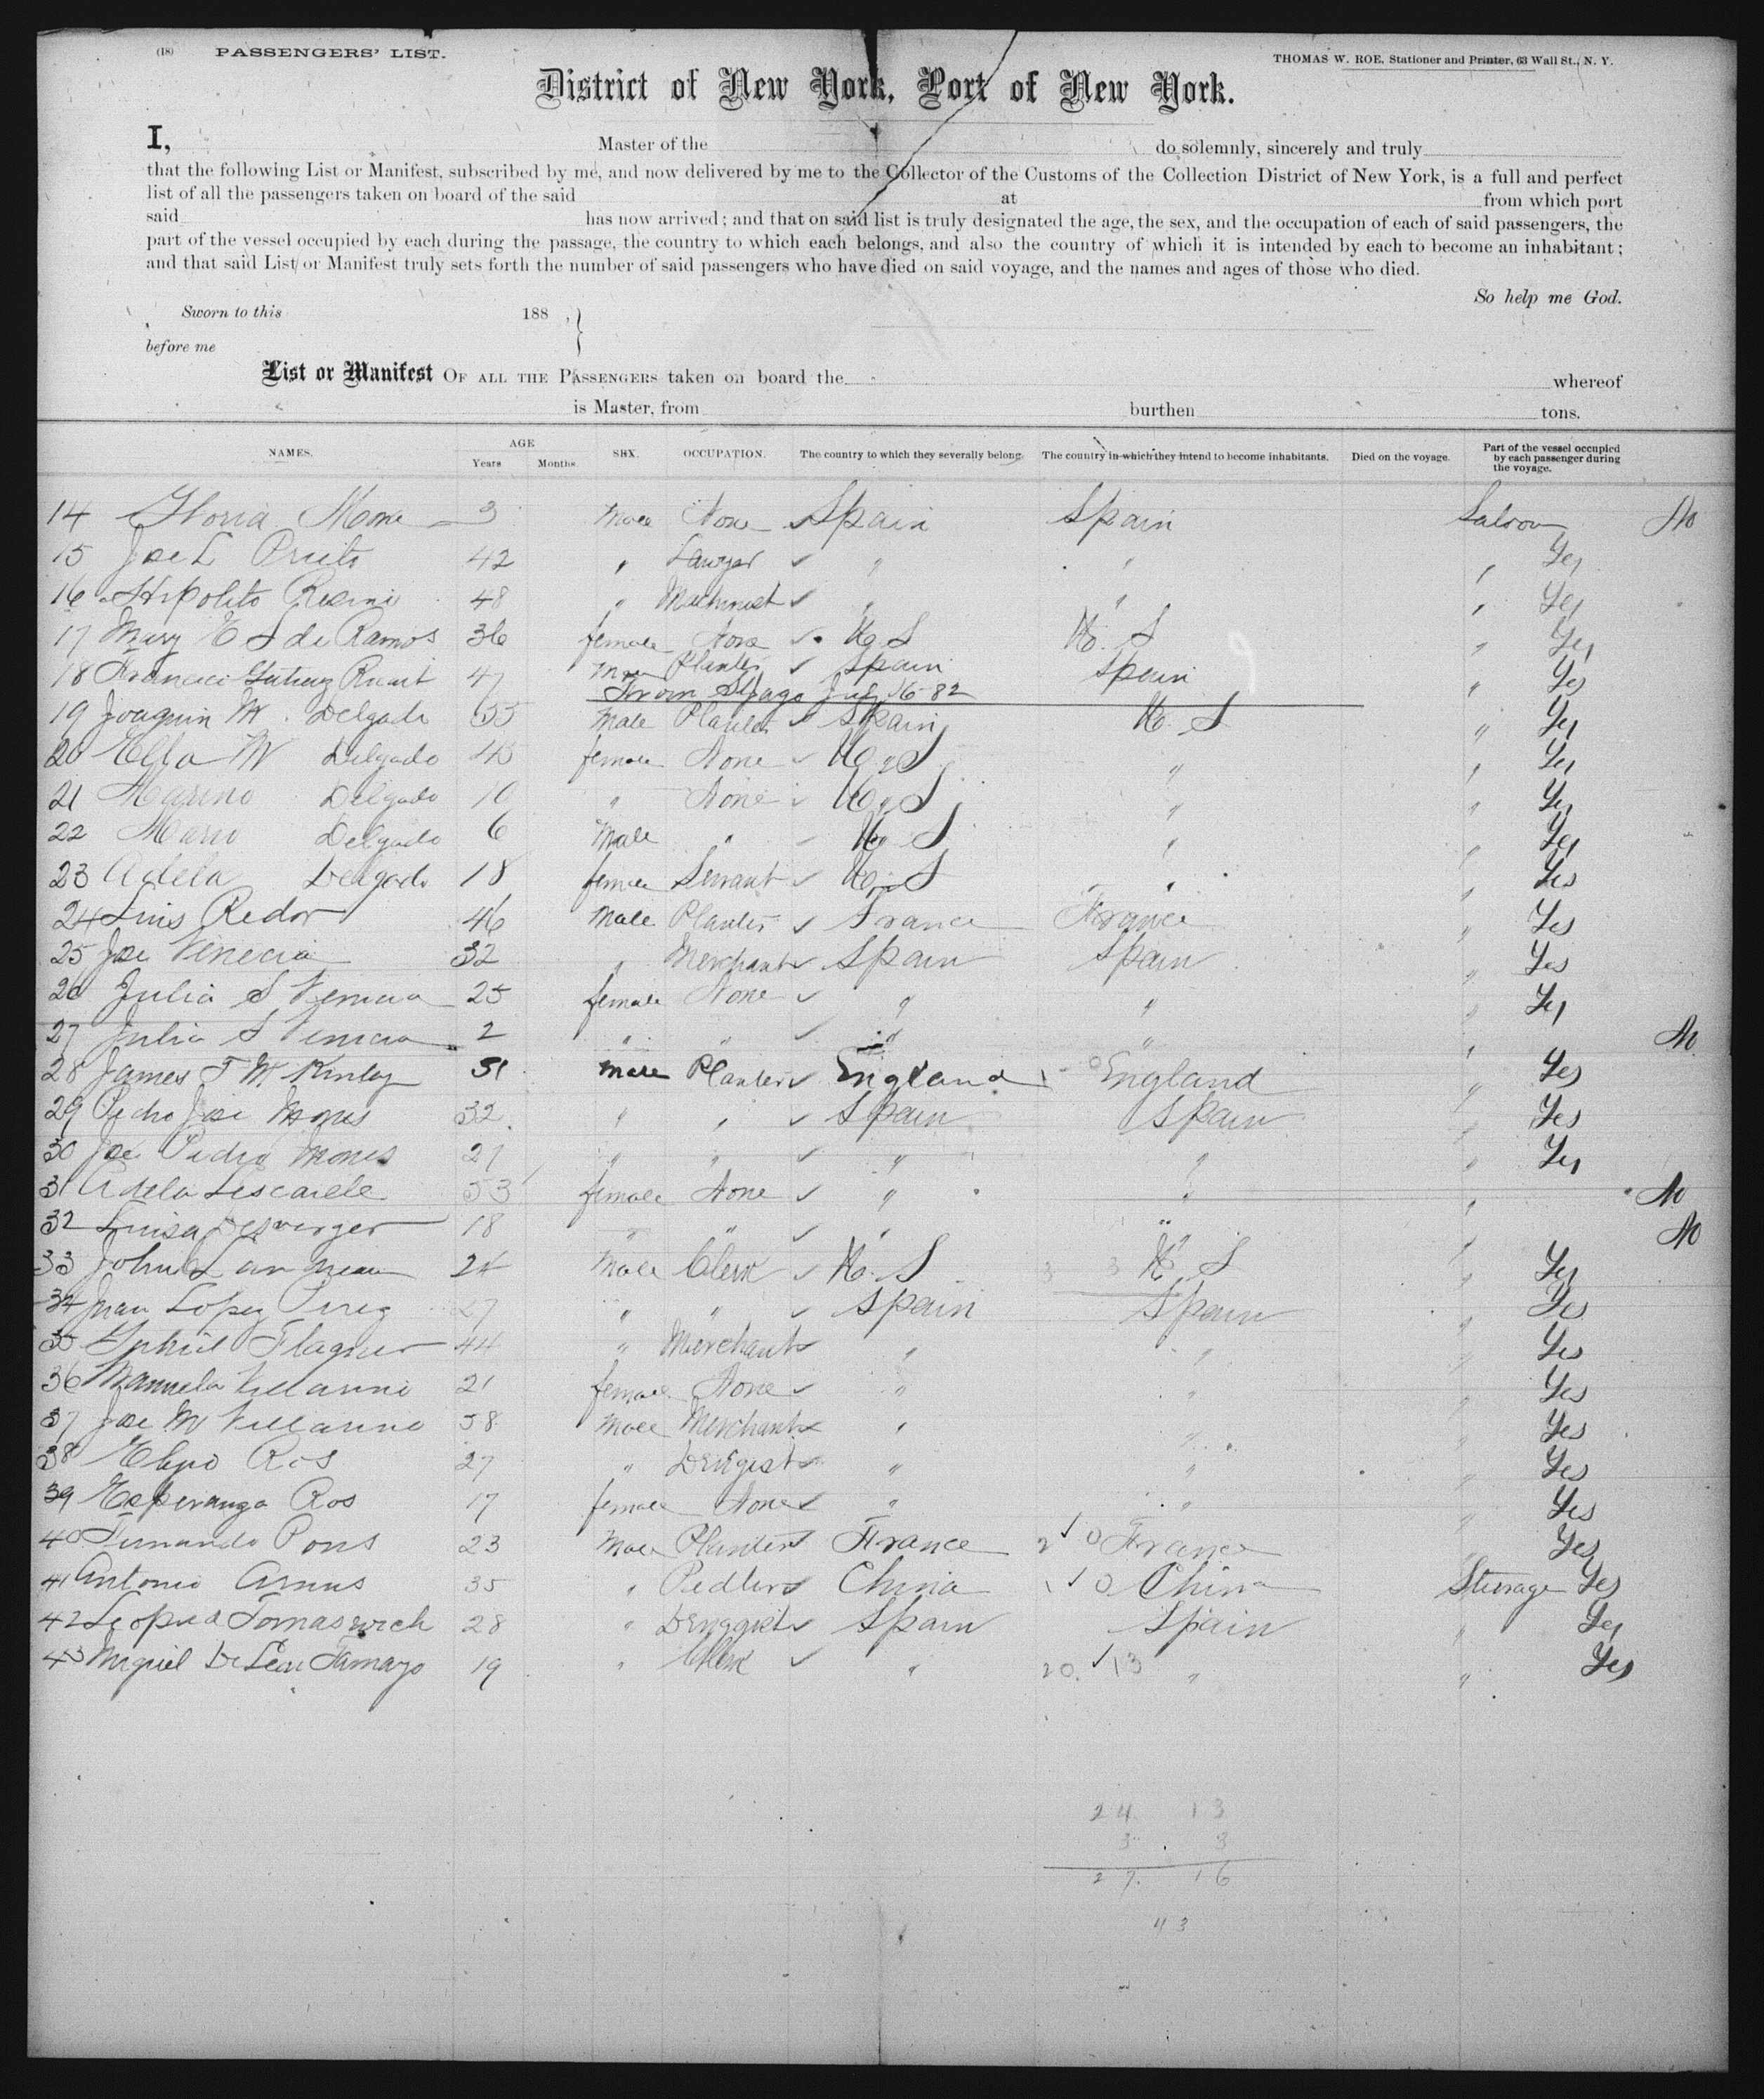 (18) PASSENGERS' LIST. THOMAS W. ROE, Stationer and Printer, 63 Wall St., N. Y.
District of New York, Port of New York.
I, Master of the do solemnly, sincerely and truly
that the following List or Manifest, subscribed by me, and now delivered by me to the Collector of the Customs of the Collection District of New York, is a full and perfect
list of all the passengers taken on board of the said at from which port
said has now arrived; and that on said list is truly designated the age, the sex, and the occupation of each of said passengers, the
part of the vessel occupied by each during the passage, the country to which each belongs, and also the country of which it is intended by each to become an inhabitant;
and that said List or Manifest truly sets forth the number of said passengers who have died on said voyage, and the names and ages of those who died.
So help me God.
Sworn to this 188 , }
before me
List or Manifest OF ALL THE PASSENGERS taken on board the whereof
is Master, from burthen tons.
NAMES. AGE Years Months. SEX. OCCUPATION. The country to which they severally belong. The country in which they intend to become inhabitants. Died on the voyage. Part of the vessel occupied by each passenger during the voyage.
14 3 Male None Spain Spain Saloon No
15 Jose L Prieto 42 " Lawyer " " " Yes
16 Hipolito 48 " Machinist " " " Yes
17 Mary E S de Ramos 36 female None U S U. S " Yes
18 47 Male Planter Spain Spain " Yes
From St Jago 16-82
19 Joaquin M. Delgado 55 Male Planter Spain U. S " Yes
20 Ella M Delgado 45 female None U S " " Yes
21 Marino Delgado 10 " None U S " " Yes
22 Mario Delgado 6 Male " U S " " Yes
23 Adela Delgado 18 female Servant U S " " Yes
24 Luis Redor 46 Male Planter France France " Yes
25 Jose Venecia 32 " Merchant Spain Spain " Yes
26 Julia S Venecia 25 female None " " " Yes
27 Julia S Venecia 2 " " " " " No
28 James T McKinley 51 Male Planter England England " Yes
29 Pedro Jose Mones 32 " " Spain Spain " Yes
30 Jose Pedro Mones 21 " " " " " Yes
31 Adela Lescaille 53 female None " " " No
32 Luisa 18 " " " " " No
33 John 24 Male Clerk U. S U S " Yes
34 Juan Lopez Perez 27 " " Spain Spain " Yes
35 44 " Merchant " " " Yes
36 Manuela Villarino 21 female None " " " Yes
37 Jose M Villarino 58 Male Merchant " " " Yes
38 Elpio Ros 27 " Drugist " " " Yes
39 Esperanza Ros 17 female None " " " Yes
40 Fernando Pons 23 Male Planter France France " Yes
41 Antonio Armus 35 " Pedler China China Steerage Yes
42 28 " Druggist Spain Spain " Yes
43 Miguel De Leon Tamayo 19 " Clerk " 20. 13 " " Yes
24. 13
3 . 3
27. 16
43